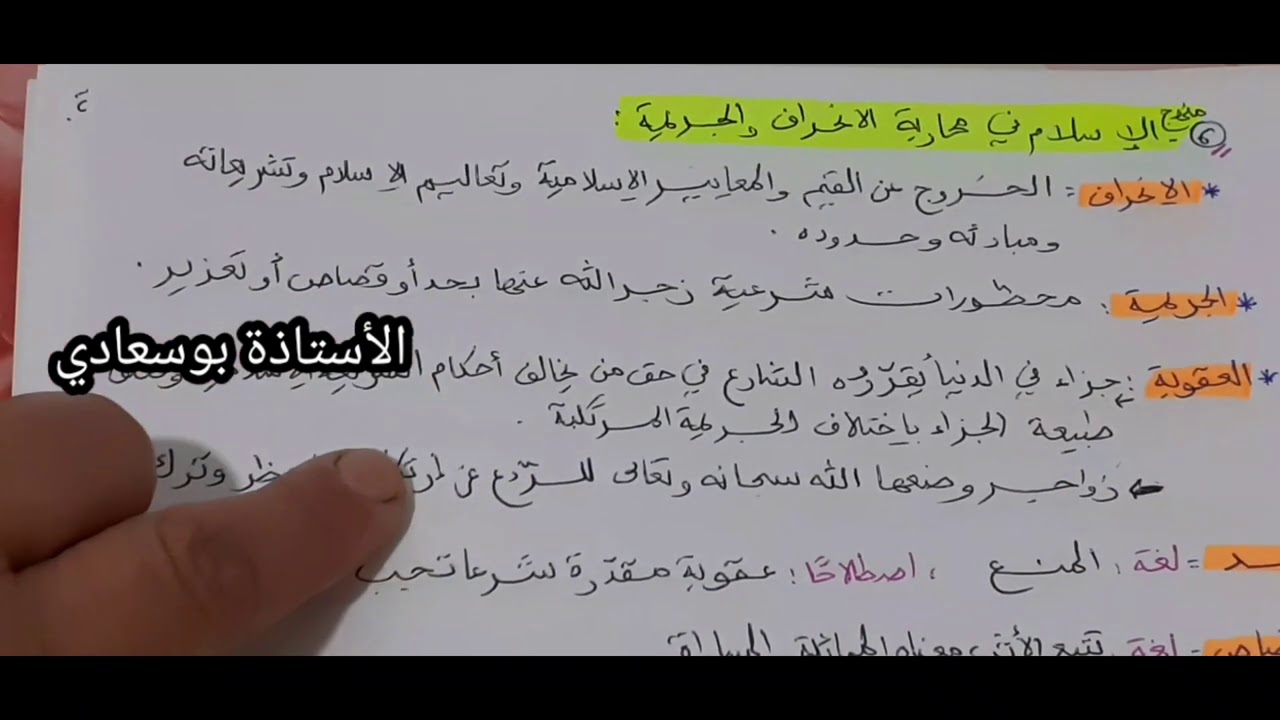 ⑥ منهج الإسلام في محاربة الانحراف والجريمة :
* الانحراف = الخروج عن القيم والمعايير الإسلامية وتعاليم الإسلام وتشريعاته
ومبادئه وحدوده .
* الجريمة : محظورات شرعية زجر الله عنها بحد أو قصاص أو تعزير .
الأستاذة بوسعادي
* العقوبة : جزاء في الدنيا يقرره الشارع في حق من يخالف أحكام
طبيعة الجزاء باختلاف الجريمة المرتكبة .
زواجر وضعها الله سبحانه وتعالى للردع عن وترك
= لغة : المنع ، اصطلاحًا : عقوبة مقدّرة شرعا تجب
لغة